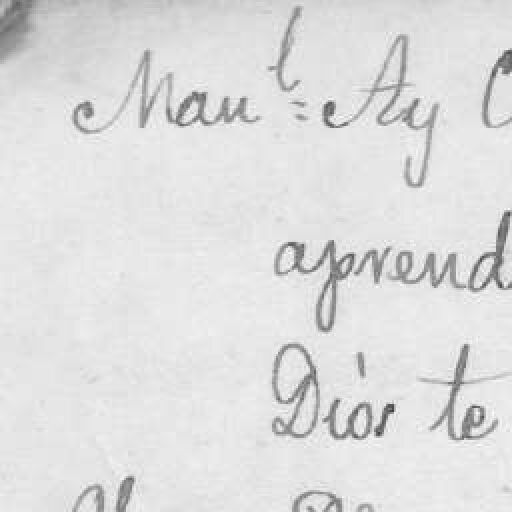 Man^l = Ay
aprend
Diós te